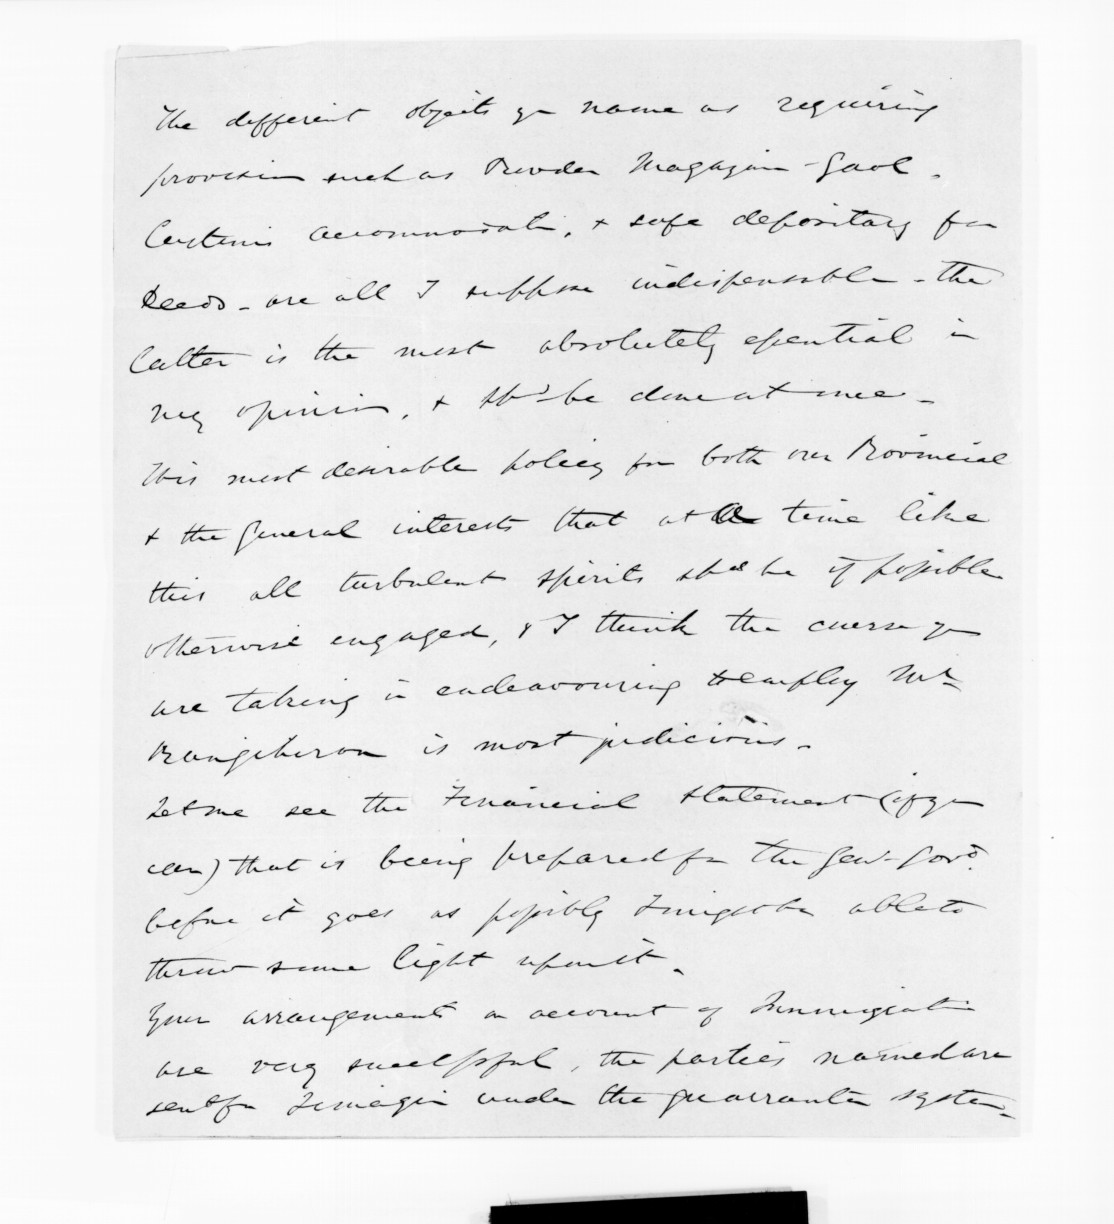 The different objects yr name as requiring
provision such as Powder Magazine - Gaol.
Customs accommodatn, & safe depositary for
Deeds - are all I suppose indispensable - the
latter is the most absolutely essential in
my opinion, & shd be done at once -
This most desirable policy for both our Provincial
& the general interests that at a time like
this all turbulent spirits shd be if possible
otherwise engaged, & I think the course yu
are taking in endeavouring to employ Mr
is most judicious.
Let me see the Financial statement (if yu
can) that is being prepared for the Genl Govt
before it goes as possibly I might be able to
throw some light upon it.
Your arrangements on account of Immigratn
are very successful, the parties named are
sent for I imagine under the guarantee system -